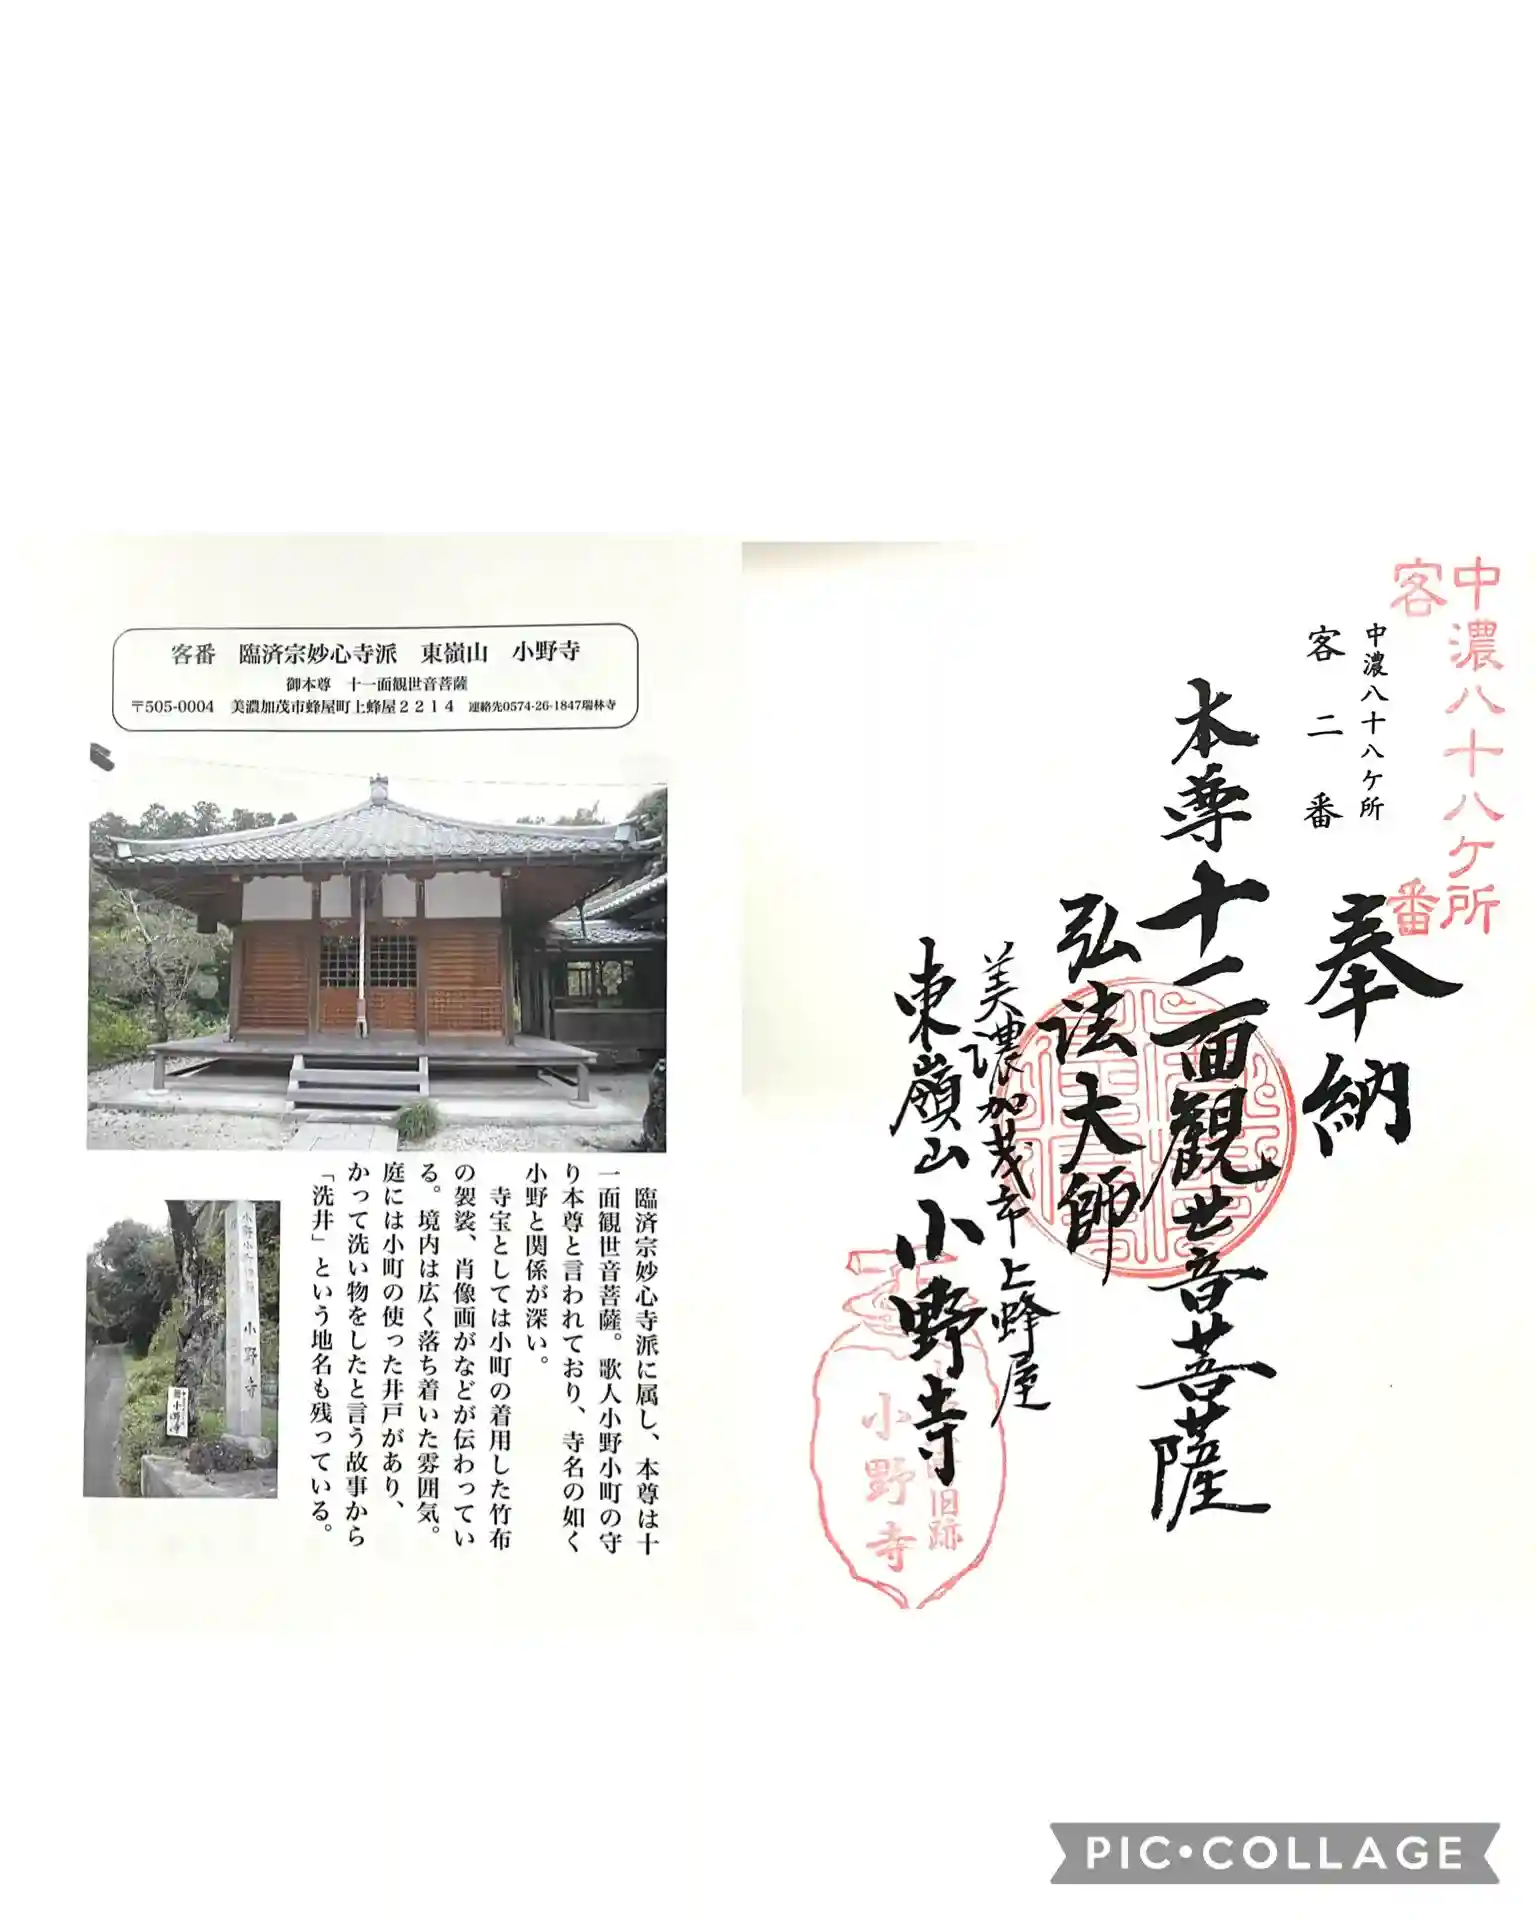 客番　臨済宗妙心寺派　東嶺山　小野寺
御本尊　十一面観世音菩薩
〒505-0004　美濃加茂市蜂屋町上蜂屋２２１４　連絡先0574-26-1847瑞林寺
臨済宗妙心寺派に属し、本尊は十
一面観世音菩薩。歌人小野小町の守
り本尊と言われており、寺名の如く
小野と関係が深い。
寺宝としては小町の着用した竹布
の袈裟、肖像画がなどが伝わってい
る。境内は広く落ち着いた雰囲気。
庭には小町の使った井戸があり、
かって洗い物をしたと言う故事から
「洗井」という地名も残っている。
小野寺
小野寺
中濃八十八ケ所
客　番
中濃八十八ケ所
客二番
奉納
本尊十一面観世音菩薩
弘法大師
美濃加茂市上蜂屋
東嶺山小野寺
旧跡
小野寺
PIC•COLLAGE